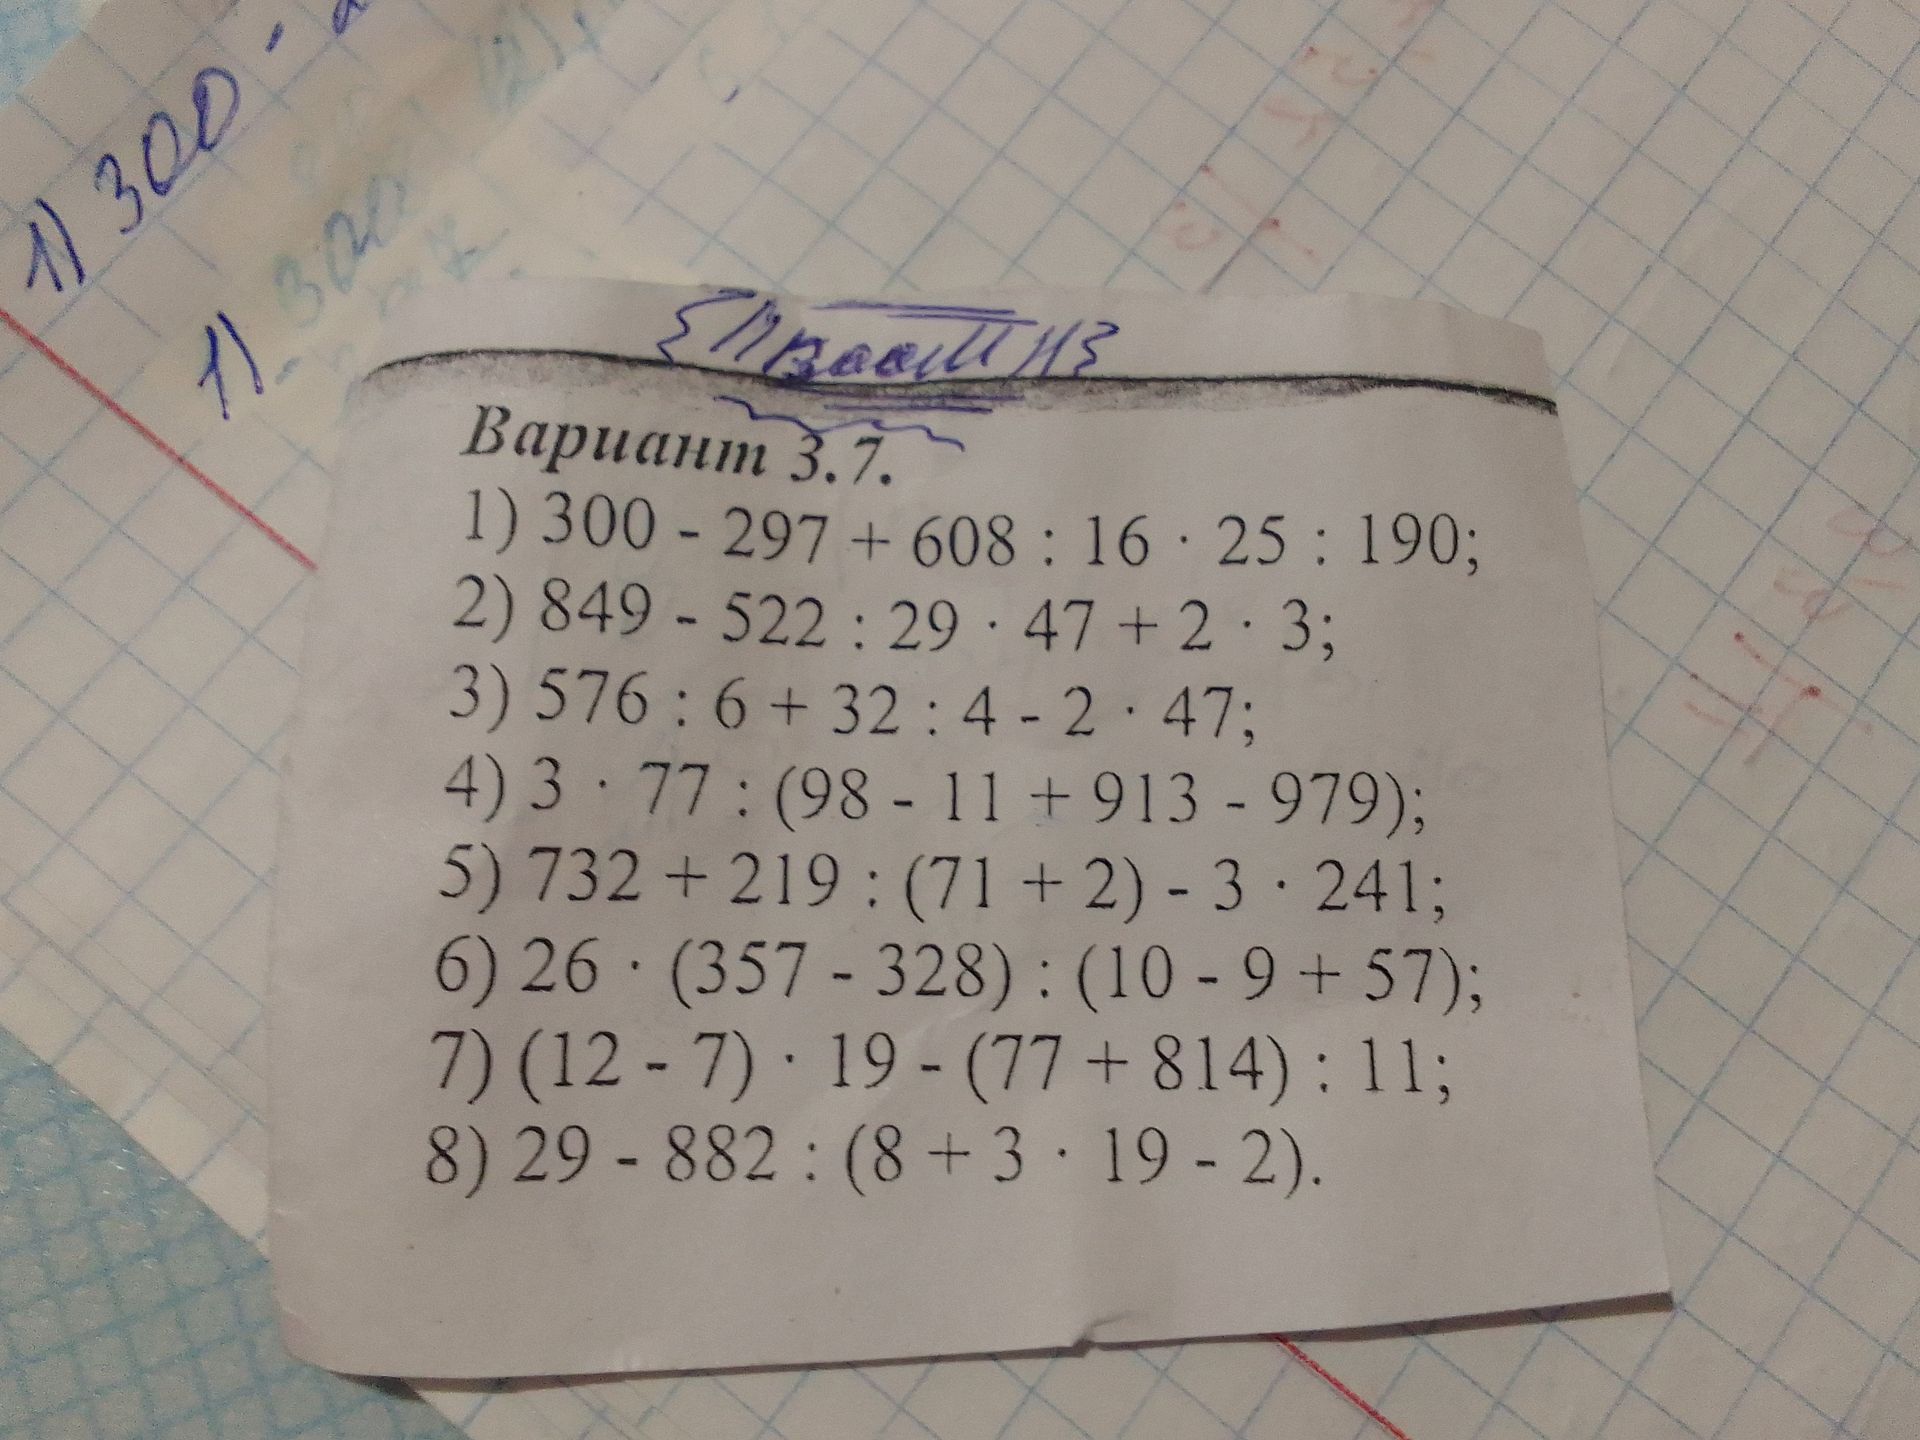 1) 300 -
1) 300
Вариант 3.7.
1) 300 - 297 + 608 : 16 · 25 : 190;
2) 849 - 522 : 29 · 47 + 2 · 3;
3) 576 : 6 + 32 : 4 - 2 · 47;
4) 3 · 77 : (98 - 11 + 913 - 979);
5) 732 + 219 : (71 + 2) - 3 · 241;
6) 26 · (357 - 328) : (10 - 9 + 57);
7) (12 - 7) · 19 - (77 + 814) : 11;
8) 29 - 882 : (8 + 3 · 19 - 2).